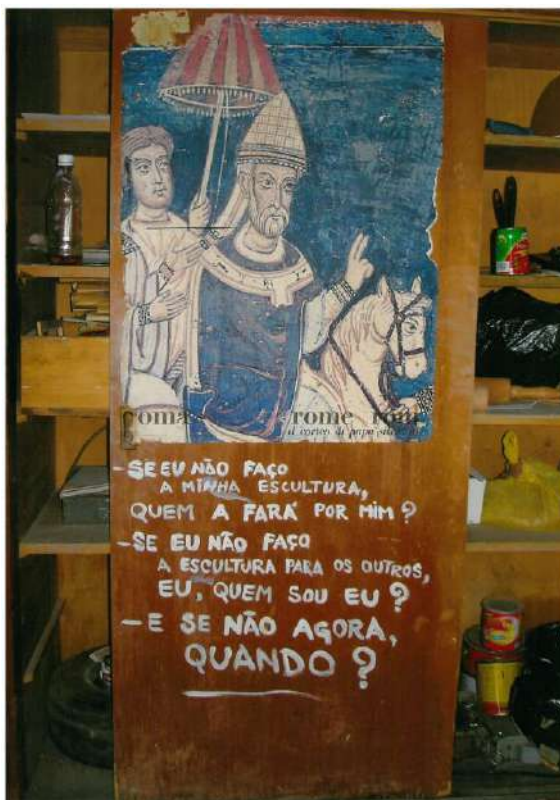 roma rome rom
il corteo di papa
- SE EU NÃO FAÇO
A MINHA ESCULTURA,
QUEM A FARÁ POR MIM?
- SE EU NÃO FAÇO
A ESCULTURA PARA OS OUTROS,
EU, QUEM SOU EU?
- E SE NÃO AGORA,
QUANDO?